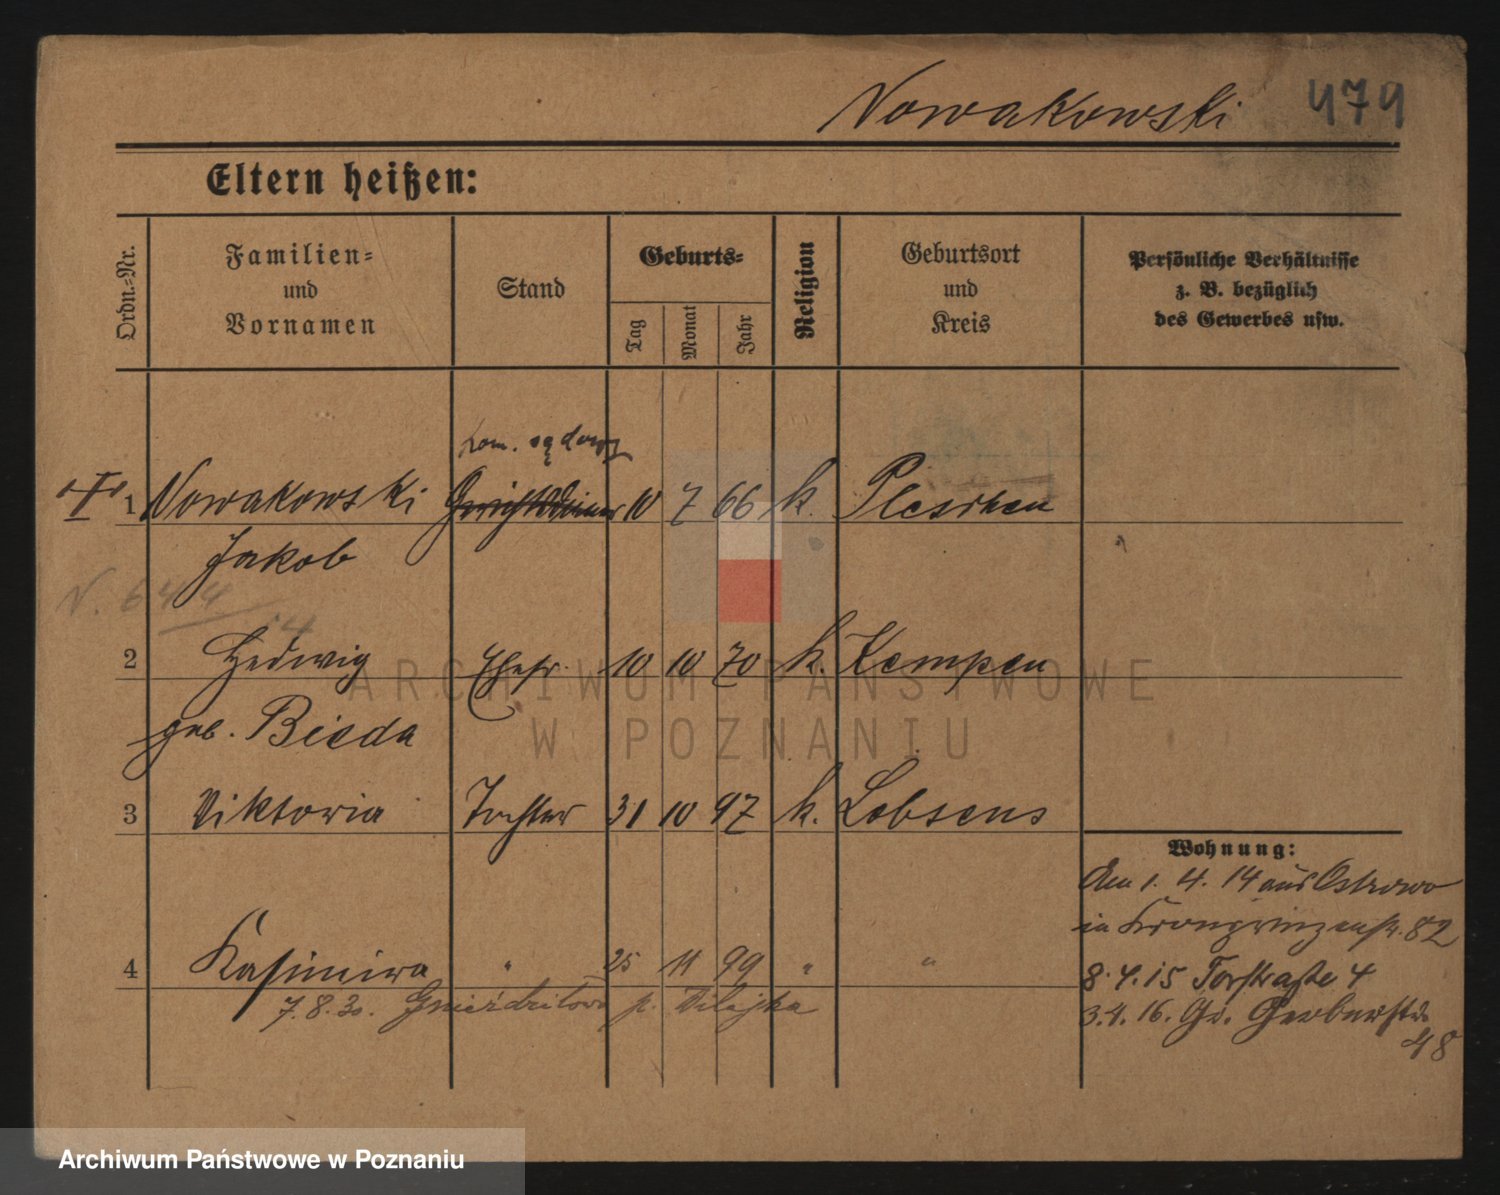 Nowakowski 479
Eltern heißen:
Ordn.-Nr.
Familien-
und
Vornamen
Stand
Geburts-
Tag
Monat
Jahr
Religion
Geburtsort
und
Kreis
Persönliche Verhältnisse
z. B. bezüglich
des Gewerbes usw.
kom. sądowy
1 Nowakowski Gerichtsdiener 10 7 66 k. Pleschen
Jakob
N. 644
14
2 Hedwig Ehefr. 10 10 70 k. Kempen
geb. Bieda
3 Viktoria Tochter 31 10 97 k. Lobsens
4 Kasimira " 25 11 99 " "
7.8.30. p. Wilejka
Wohnung:
Am 1. 4. 14 aus Ostrowo
in Kronprinzenstr. 82
8.4.15 Torstraße 4
3.4.16. Gr. Gerberstr.
48
ARCHIWUM PAŃSTWOWE
W POZNANIU
Archiwum Państwowe w Poznaniu